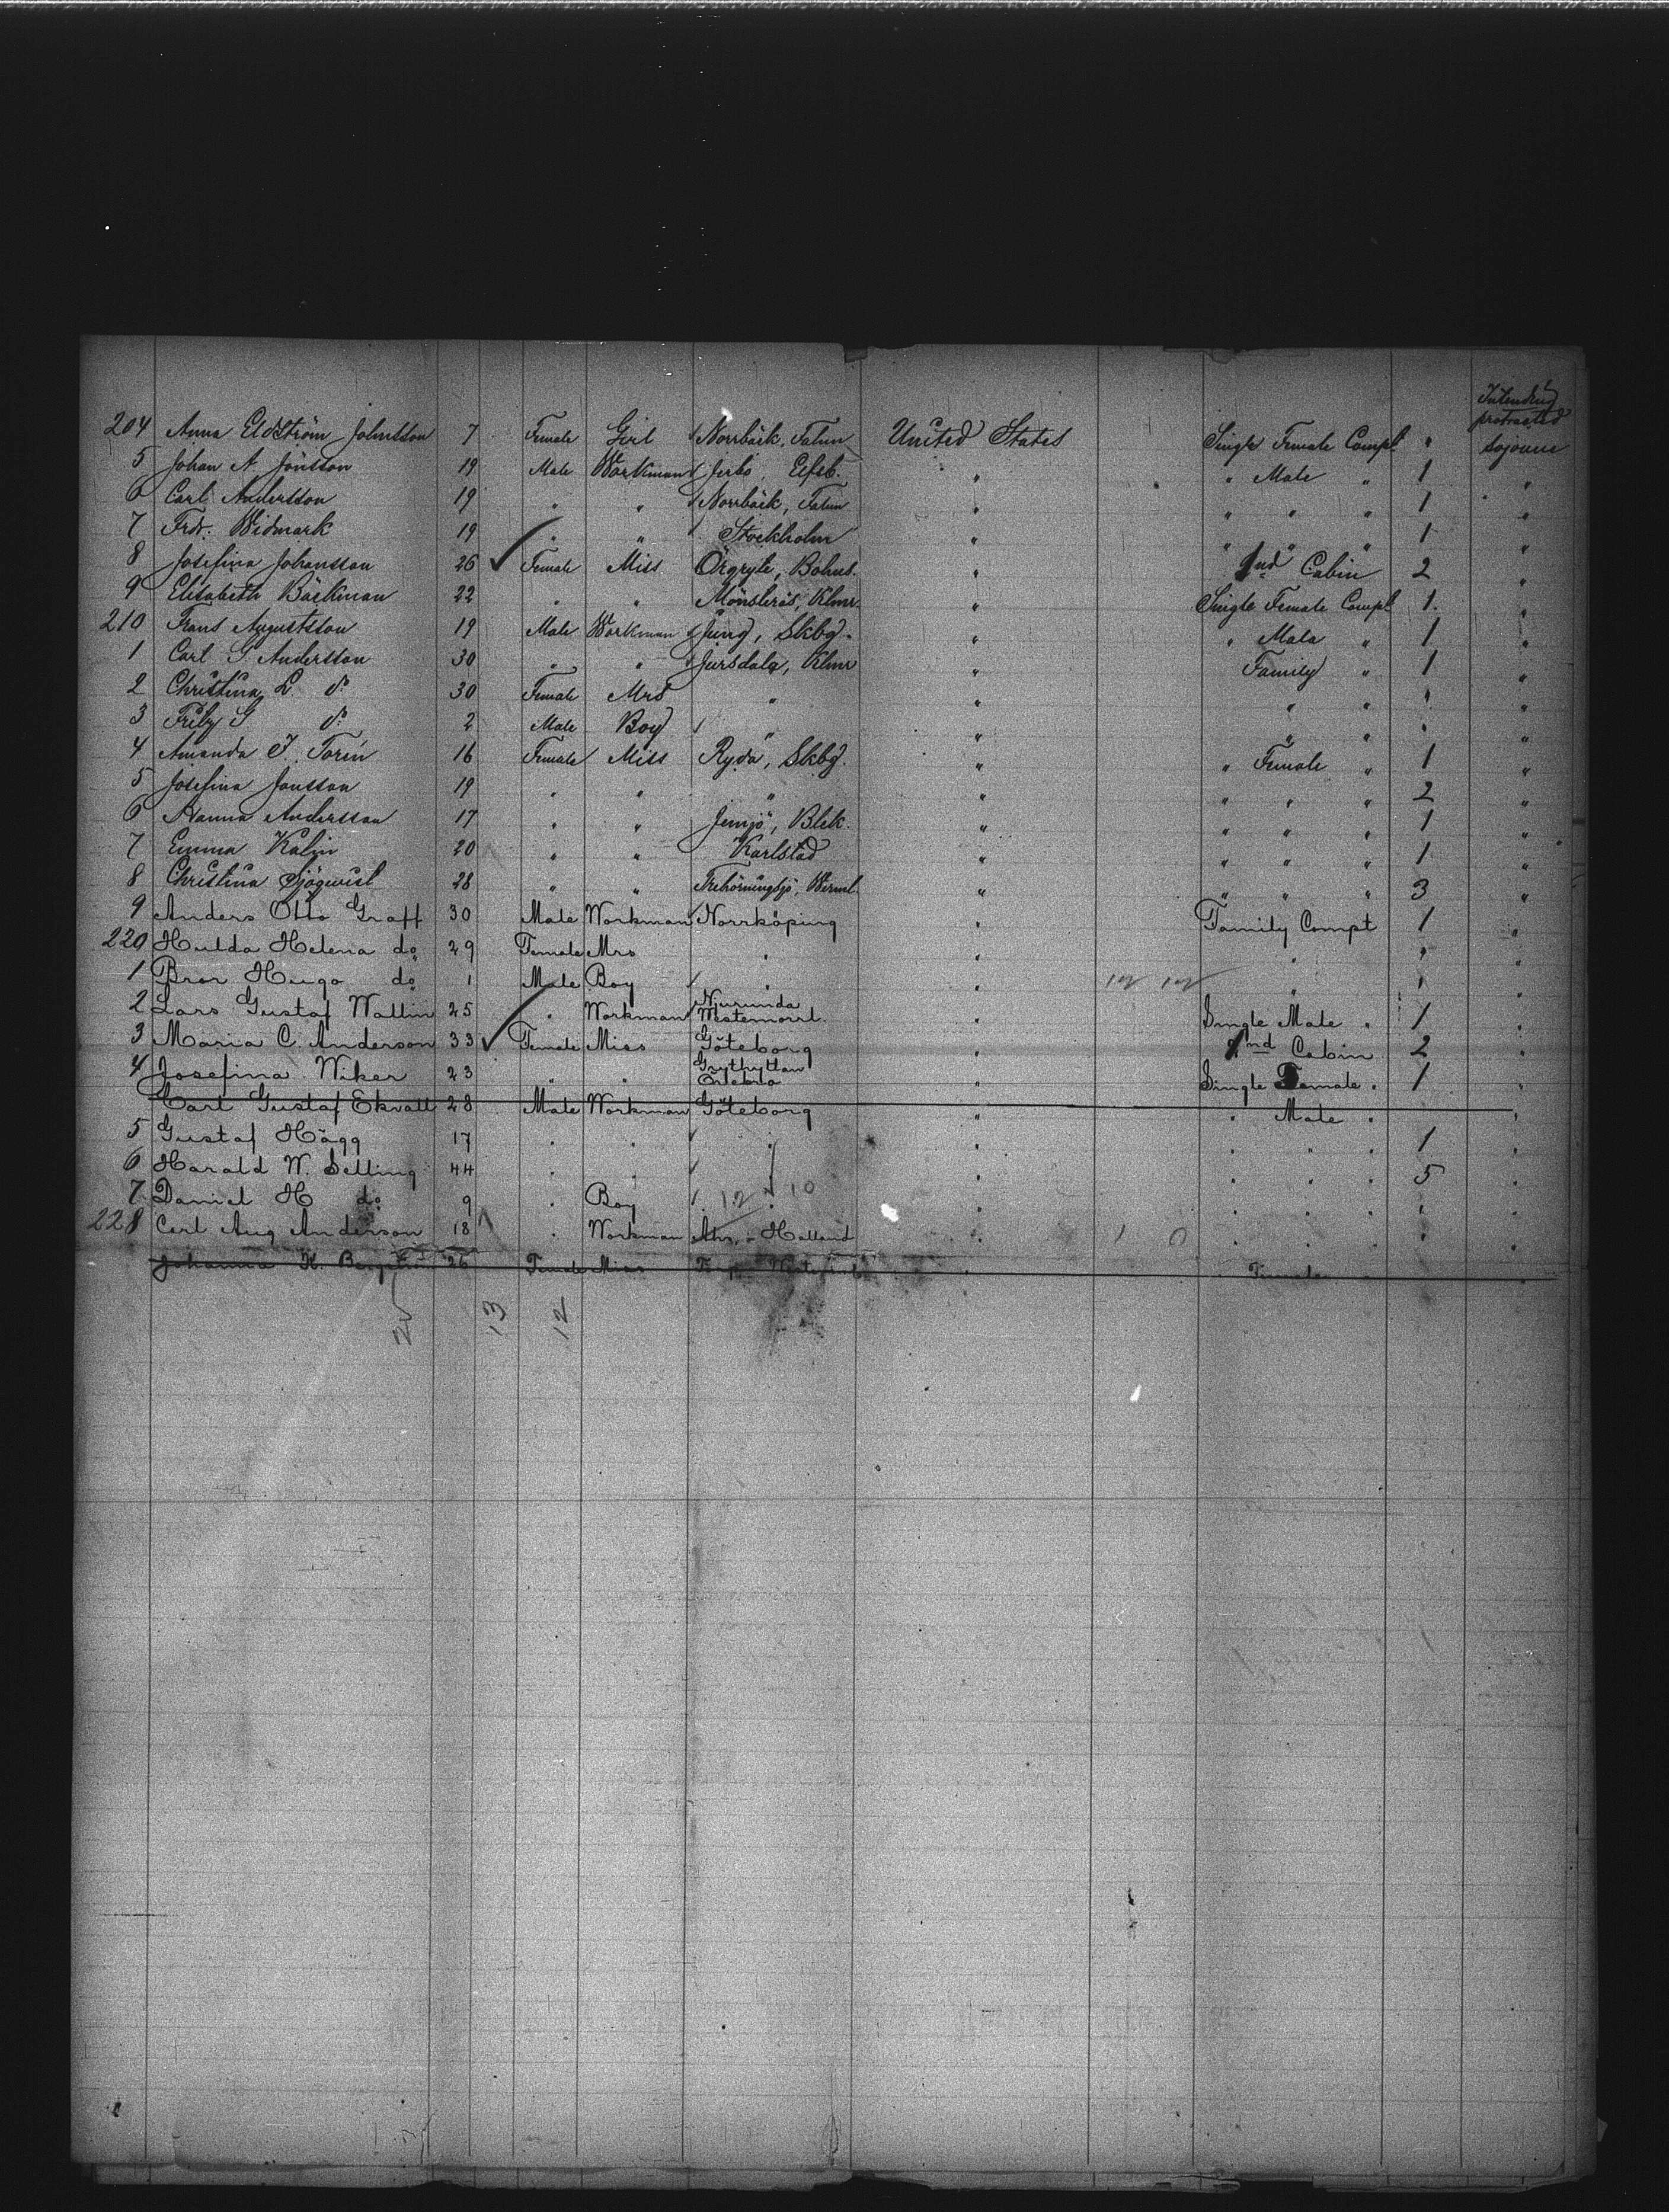 Intending
protracted
204 Anna Eldström Johnsson 7 Female Girl Norrbäck, Falun United States Single Female Compt " sojourn
5 Johan A. Jönsson 19 Male Workman Jerbo, Elfsb. " " Male " 1 "
6 Carl Andersson 19 " " Norrbäck, Falun " " " " 1 "
7 Frdr. Widmark 19 " " Stockholm " " " " 1 "
8 Josefina Johansson 26 Female Miss Örgryte, Bohus. " 2nd Cabin 2 "
9 Elisabeth Bäckman 22 " " Mönsterås, Klmr. " Single Female Compt 1 "
210 Frans Augustsson 19 Male Workman Jung, Skbg. " " Male " 1 "
1 Carl G Andersson 30 " " Jursdala, Klmr " Family " 1 "
2 Christina L do 30 Female Mrs " " " " " "
3 G do 2 Male Boy " " " " " "
4 Amanda J. Torin 16 Female Miss Ryda, Skbg. " " Female " 1 "
5 Josefina Jonsson 19 " " " " " " " 2 "
6 Hanna Andersson 17 " " Jemjö, Blek. " " " " 1 "
7 Emma Kalin 20 " " Karlstad " " " " 1 "
8 Christina Sjöqwist 28 " " Trehörningsjö, Werml. " " " " 3 "
9 Anders Otto Graff 30 Male Workman Norrköping " Family Compt 1 "
220 Hulda Helena do 29 Female Mrs " " " " "
1 Bror Hugo do 1 Male Boy " " 12 12 " " "
2 Lars Gustaf Wallin 25 " Workman Njurunda Westernorrl. " Single Male " 1 "
3 Maria C. Anderson 33 Female Miss Göteborg " 2nd Cabin 2 "
4 Josefina Wiker 23 " " Grythyttan Örebro " Single Female " 1 "
Carl Gustaf Ekvall 28 Male Workman Göteborg " " Male " "
5 Gustaf Hägg 17 " " " " " " " 1 "
6 Harald W. Selling 44 " " " " " " " 5 "
7 Daniel H do 9 " Boy 12 10 " " " " " "
228 Carl Aug Anderson 18 " Workman Halland " 1 0 " " " " "
Johanna K. 26 Female Miss " " Female "
20 13 12